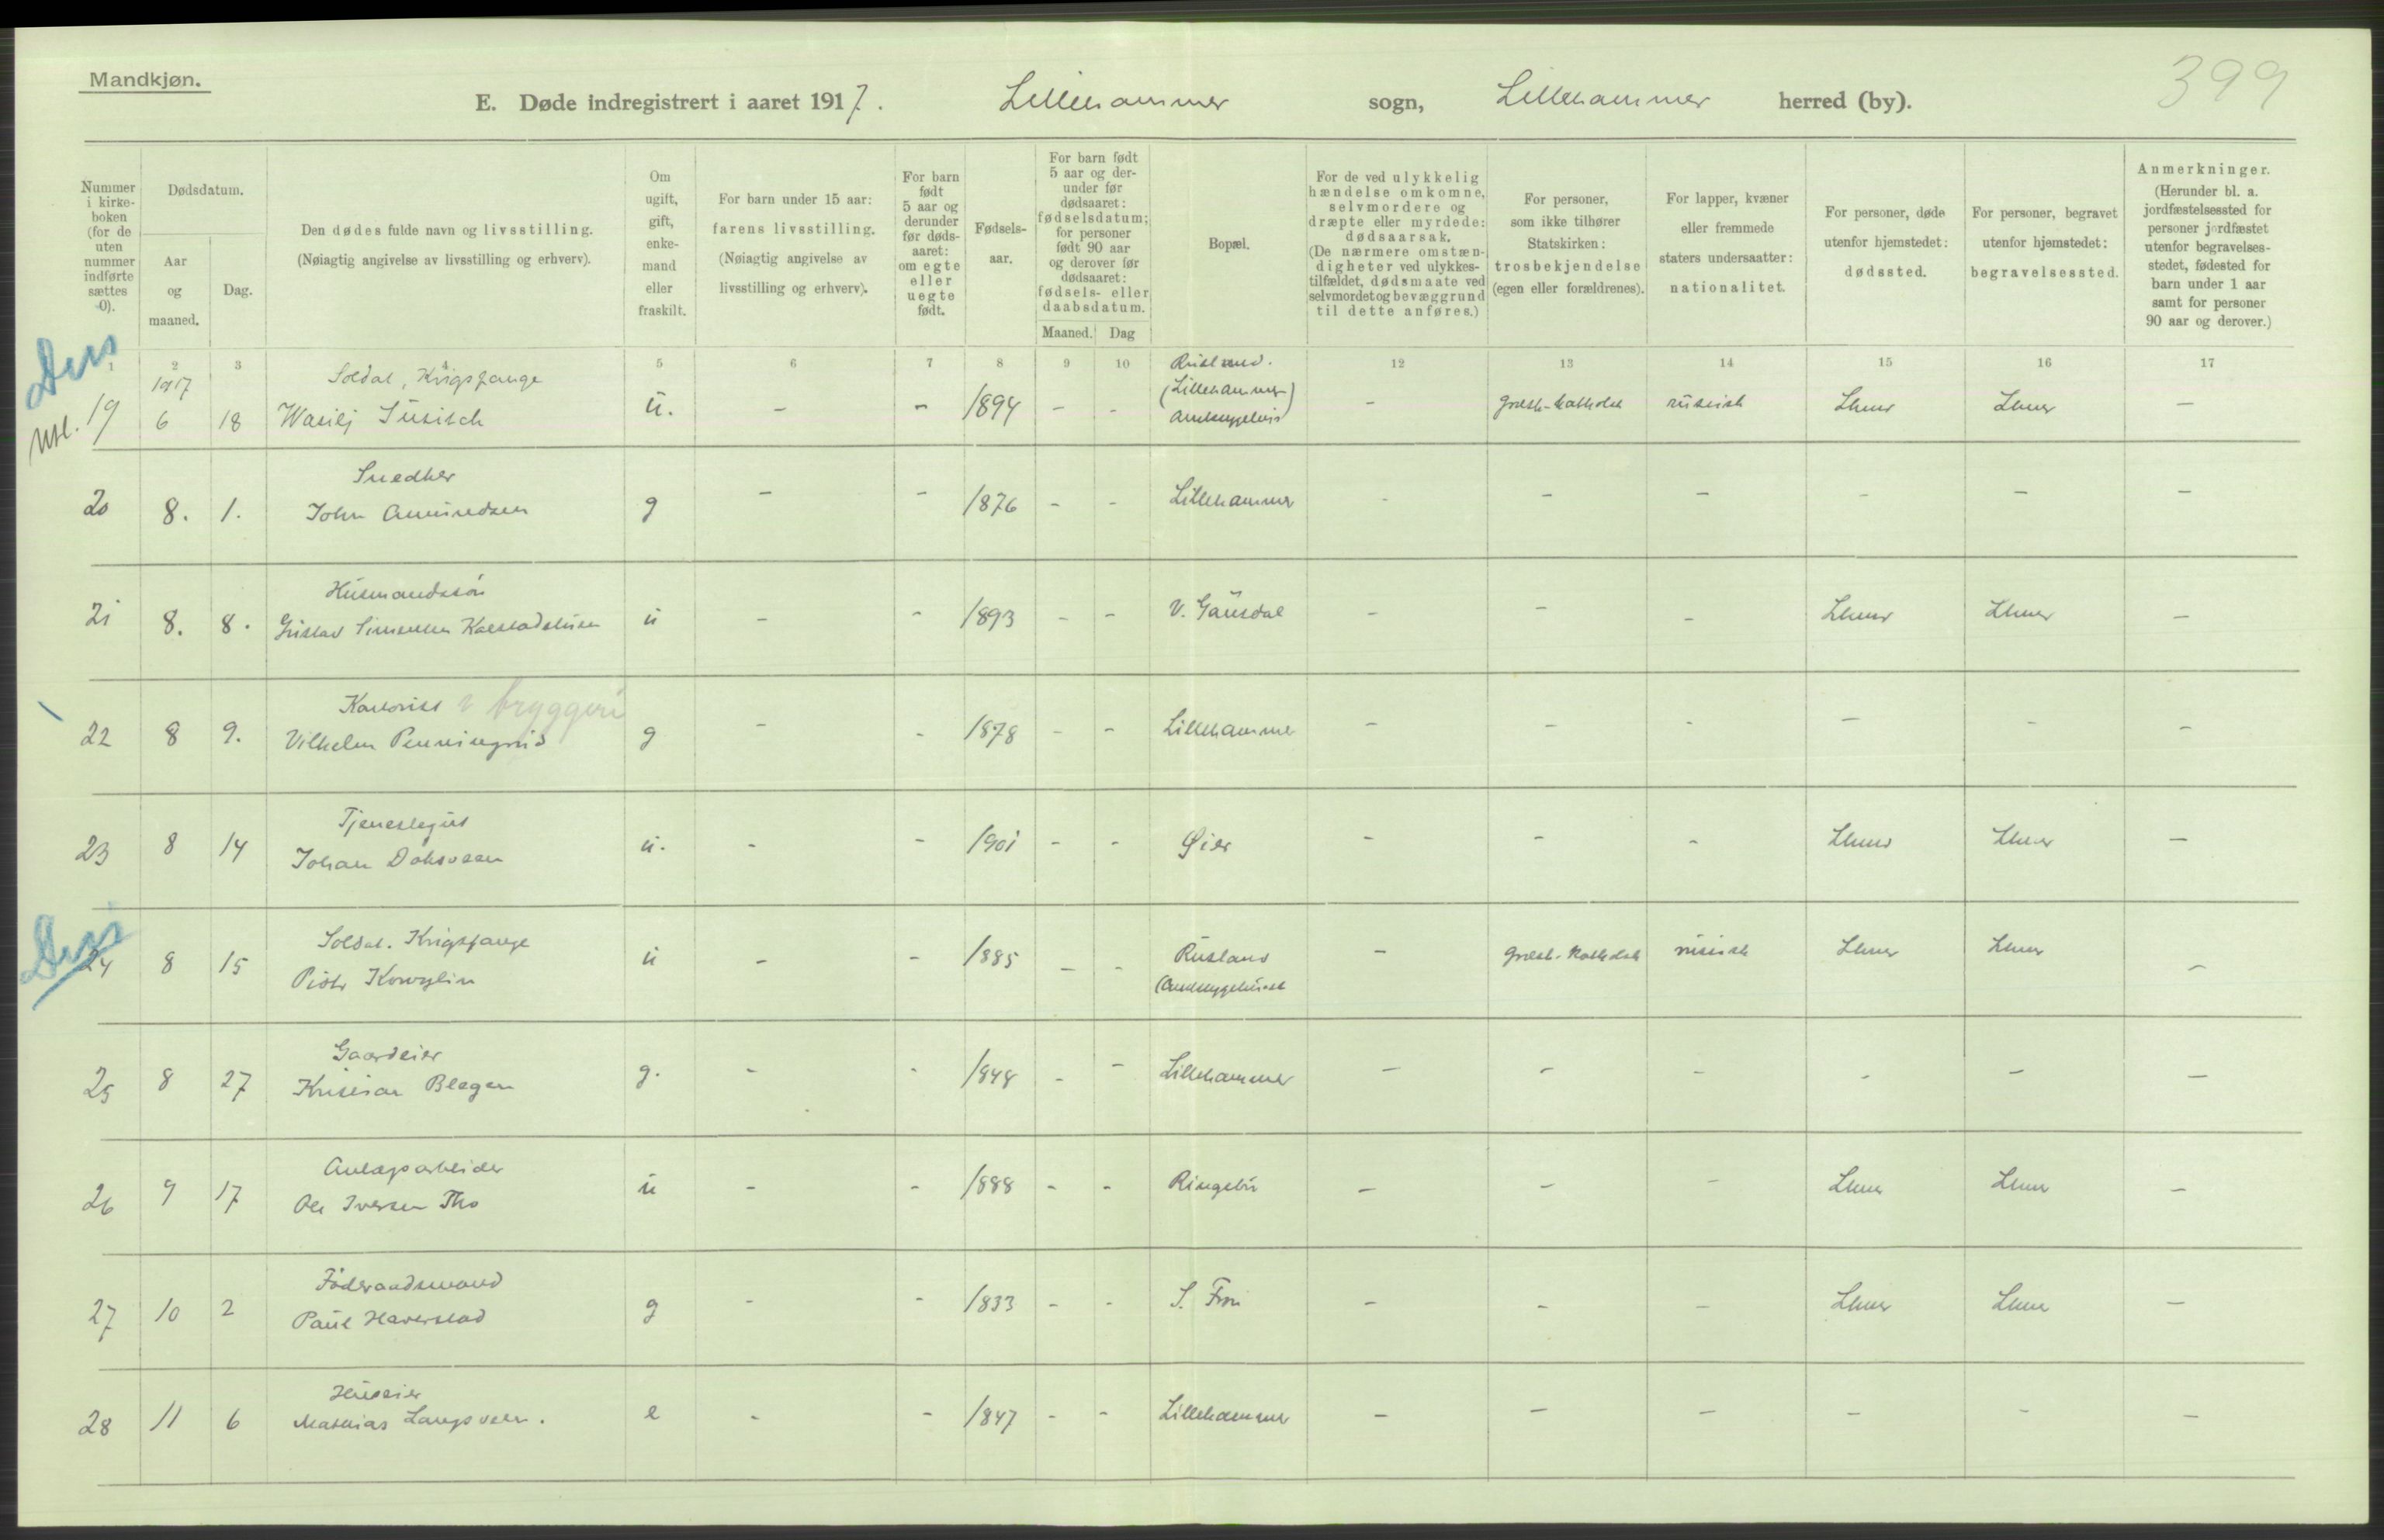 Mandkjøn.
399
E. Døde indregistrert i aaret 1917. Lillehammer sogn, Lillehammer herred (by).
Nummer i kirke-boken (for de uten nummer indførte sættes 0).
Dødsdatum.
Aar og maaned.
Dag.
Den dødes fulde navn og livsstilling.
(Nøiagtig angivelse av livsstilling og erhverv).
Om ugift, gift, enke-mand eller fraskilt.
For barn under 15 aar:
farens livsstilling.
(Nøiagtig angivelse av livsstilling og erhverv).
For barn født 5 aar og derunder før døds-aaret: om egte eller uegte født.
Fødsels-aar.
For barn født 5 aar og der-under før dødsaaret: fødselsdatum; for personer født 90 aar og derover før dødsaaret: fødsels- eller daabsdatum.
Maaned. Dag
Bopæl.
For de ved ulykkelig hændelse omkomne, selvmordere og dræpte eller myrdede: dødsaarsak. (De nærmere omstæn-digheter ved ulykkes-tilfældet, dødsmaate ved selvmordet og bevæggrund til dette anføres.)
For personer, som ikke tilhører Statskirken: trosbekjendelse (egen eller forældrenes).
For lapper, kvæner eller fremmede staters undersaatter: nationalitet.
For personer, døde utenfor hjemstedet: dødssted.
For personer, begravet utenfor hjemstedet: begravelsessted.
Anmerkninger.
(Herunder bl. a. jordfæstelsessted for personer jordfæstet utenfor begravelses-stedet, fødested for barn under 1 aar samt for personer 90 aar og derover.)
1 2 3 5 6 7 8 9 10 12 13 14 15 16 17
1917 Soldat, Krigsfange Rusland.
(Lillehammer)
19 6 18 Wasilj u. - - 1894 - - - græsk-katholsk russisk Lhmr Lhmr -
Snedker
20 8. 1. John Amundsen g - - 1876 - - Lillehammer - - - - - -
Husmandssøn
21 8. 8. Gustav Simensen u - - 1893 - - V. Gausdal - - - Lhmr Lhmr -
Kontorist v bryggeri
22 8 9. Vilhelm g - - 1878 - - Lillehammer - - - - - -
Tjenestegut
23 8 14 Johan u. - - 1901 - - Øier - - - Lhmr Lhmr -
Soldat. Krigsfange
24 8 15 Piotr Kowylin u - - 1885 - - Rusland - græsk-katholsk russisk Lhmr Lhmr -
Gaardeier
25 8 27 Kristian Blegen g. - - 1848 - - Lillehammer - - - - - -
Anlægsarbeider
26 9 17 Ole Iversen Tho u - - 1888 - - Ringebu - - - Lhmr Lhmr -
Føderaadsmand
27 10 2 Paul Haverstad g - - 1833 - - S. Fron - - - Lhmr Lhmr -
Huseier
28 11 6 Mathias Langsveen. e - - 1847 - - Lillehammer - - - - - -